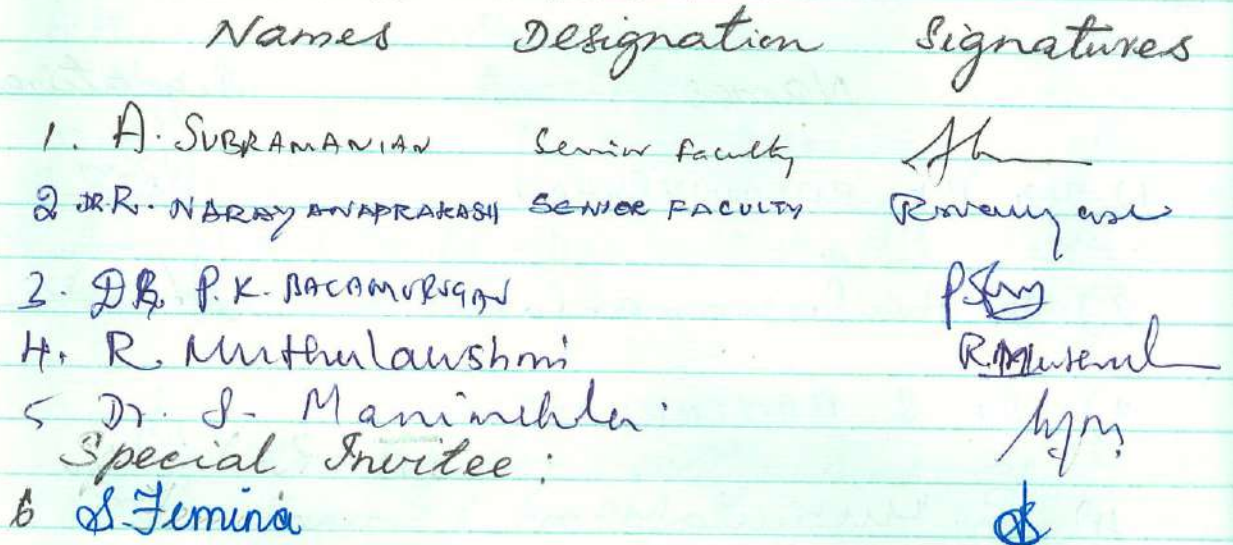 Names Designation Signatures
1. A. SUBRAMANIAN Senior Faculty
2 DR. R. NARAYANAPRAKASH SENIOR FACULTY
3. DR. P. K. BALAMURUGAN
4. R. Muthulakshmi R.
5 Dr. S. Manimekalai
Special Invitee :
6 S. Femina